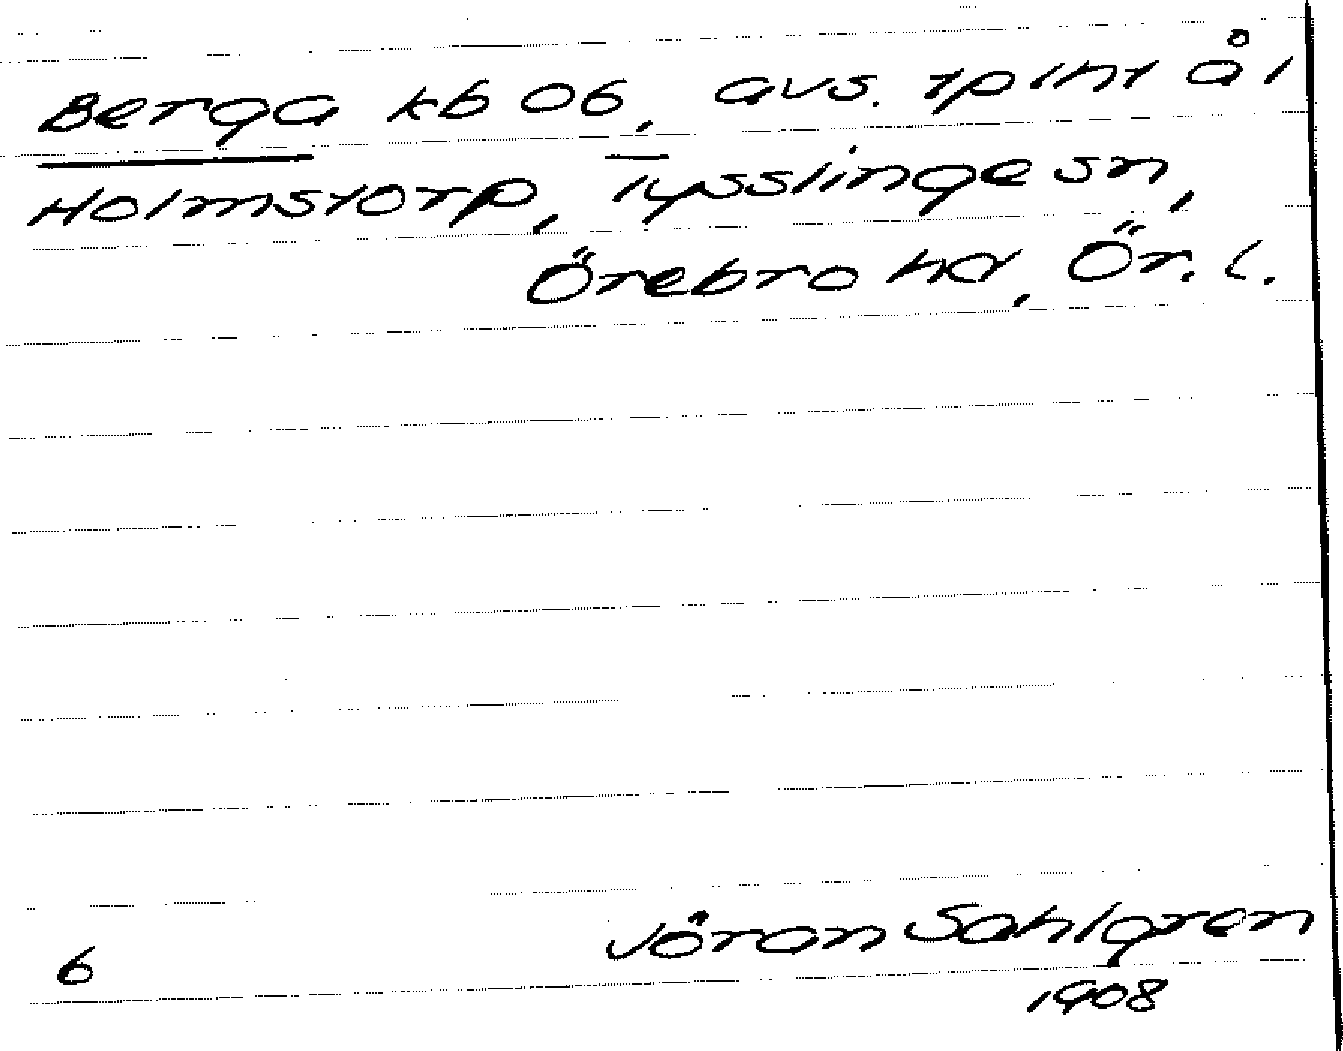 Berga kb 06, avs. tplht å l
Holmstorp, Tysslinge sn,
Örebro hd, Ör. l.
6
Jöran Sahlgren
1908